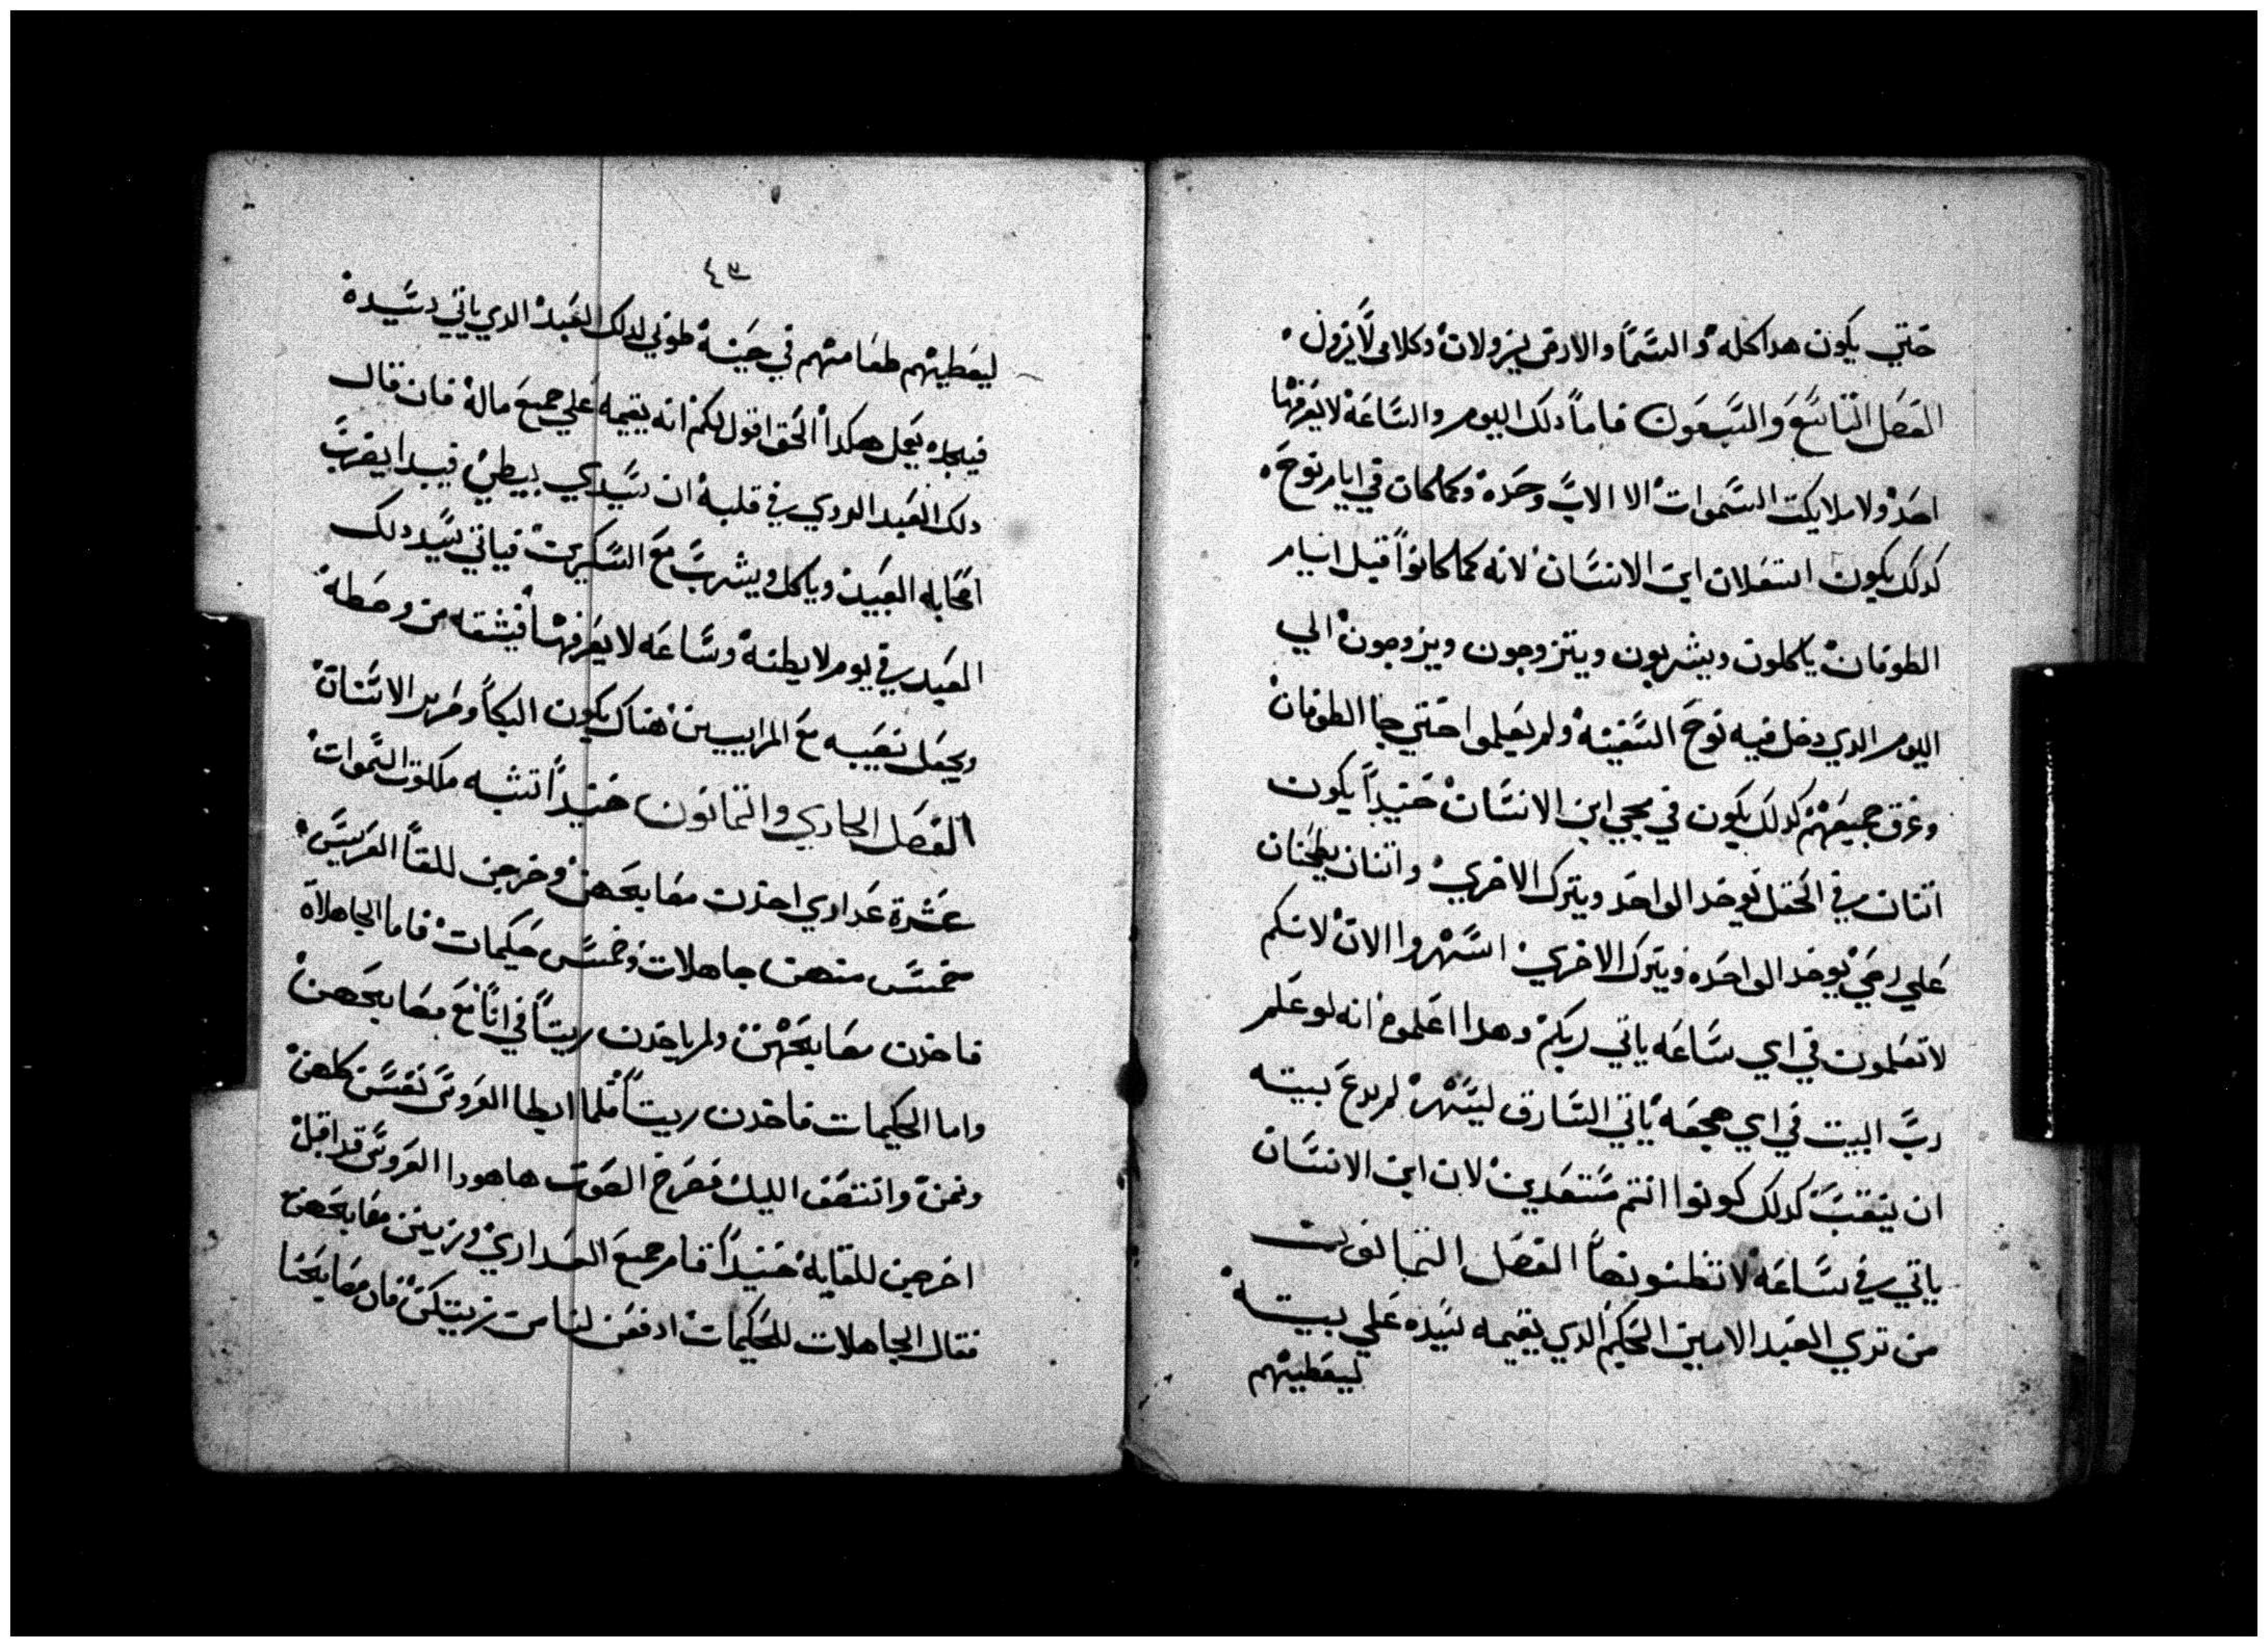 حتي يكون هدا كله والسما والارض يزولان وكلامي لا يزول
الفصل التاسع والسبعون فاما دلك اليوم والساعة لا يعرفها
احد ولا ملايكت السموات الا الاب وحده وكما كان في ايام نوح
كدلك يكون استعلان ابن الانسان لانه كما كانوا قبل ايام
الطوفان ياكلون ويشربون ويتزوجون ويزوجون الي
اليوم الدي دخل فيه نوح السفينة ولم يعلموا حتي جا الطوفان
وغرق جميعهم كدلك يكون في مجي ابن الانسان حنيدا يكون
اتنان في الحقل يوخد الواحد ويترك الاخري واتنان يطحنان
علي رحي يوخد الواحده ويترك الاخري اسهروا الان لانكم
لا تعلمون في اي ساعه ياتي ربكم وهدا اعلموه انه لو علم
رب البيت في اي هجعة ياتي السارق ليسهر لم يدع بيته
ان ينقب كدلك كونوا انتم مستعدين لان ابن الانسان
ياتي في ساعة لا تظنونها الفصل التمانون
من تري العبد الامين الحكيم الدي يقيمه سيده علي بيته
ليعطيهم
٤٣
ليعطيهم طعامهم في حينه طوبي لدلك العبد الدي ياتي سيده
فيجده يعمل هكدا الحق اقول لكم انه يقيمه علي جميع ماله فان قال
دلك العبد الردي في قلبه ان سيدي يبطي فيبدا يضرب
اصحابه العبيد وياكل ويشرب مع السكيرين فياتي سيد دلك
العبد في يوم لا يظنه وساعه لا يعرفها فيشقه من وسطه
ويجعل نصيبه مع المراييين هناك يكون البكا وصرير الاسنان
الفصل الحادي والتمانون حنيدا تشبه ملكوت السموات
عشرة عداري اخدت مصابيحهن وخرجن للقا العريس
خمس منهن جاهلات وخمس حكيمات فاما الجاهلات
فاخدن مصابيحهن ولم ياخدن زيتا في انا مع مصابيحهن
واما الحكيمات فاخدن زيتا فلما ابطا العروس نعسن كلهن
ونمن وانتصف الليل فصرخ الصوت هاهودا العروس قد اقبل
اخرجن للقايه حنيدا قام جميع العداري وزينن مصابيحهن
فقال الجاهلات للحكيمات ادفعن لنا من زيتكن فان مصابيحنا